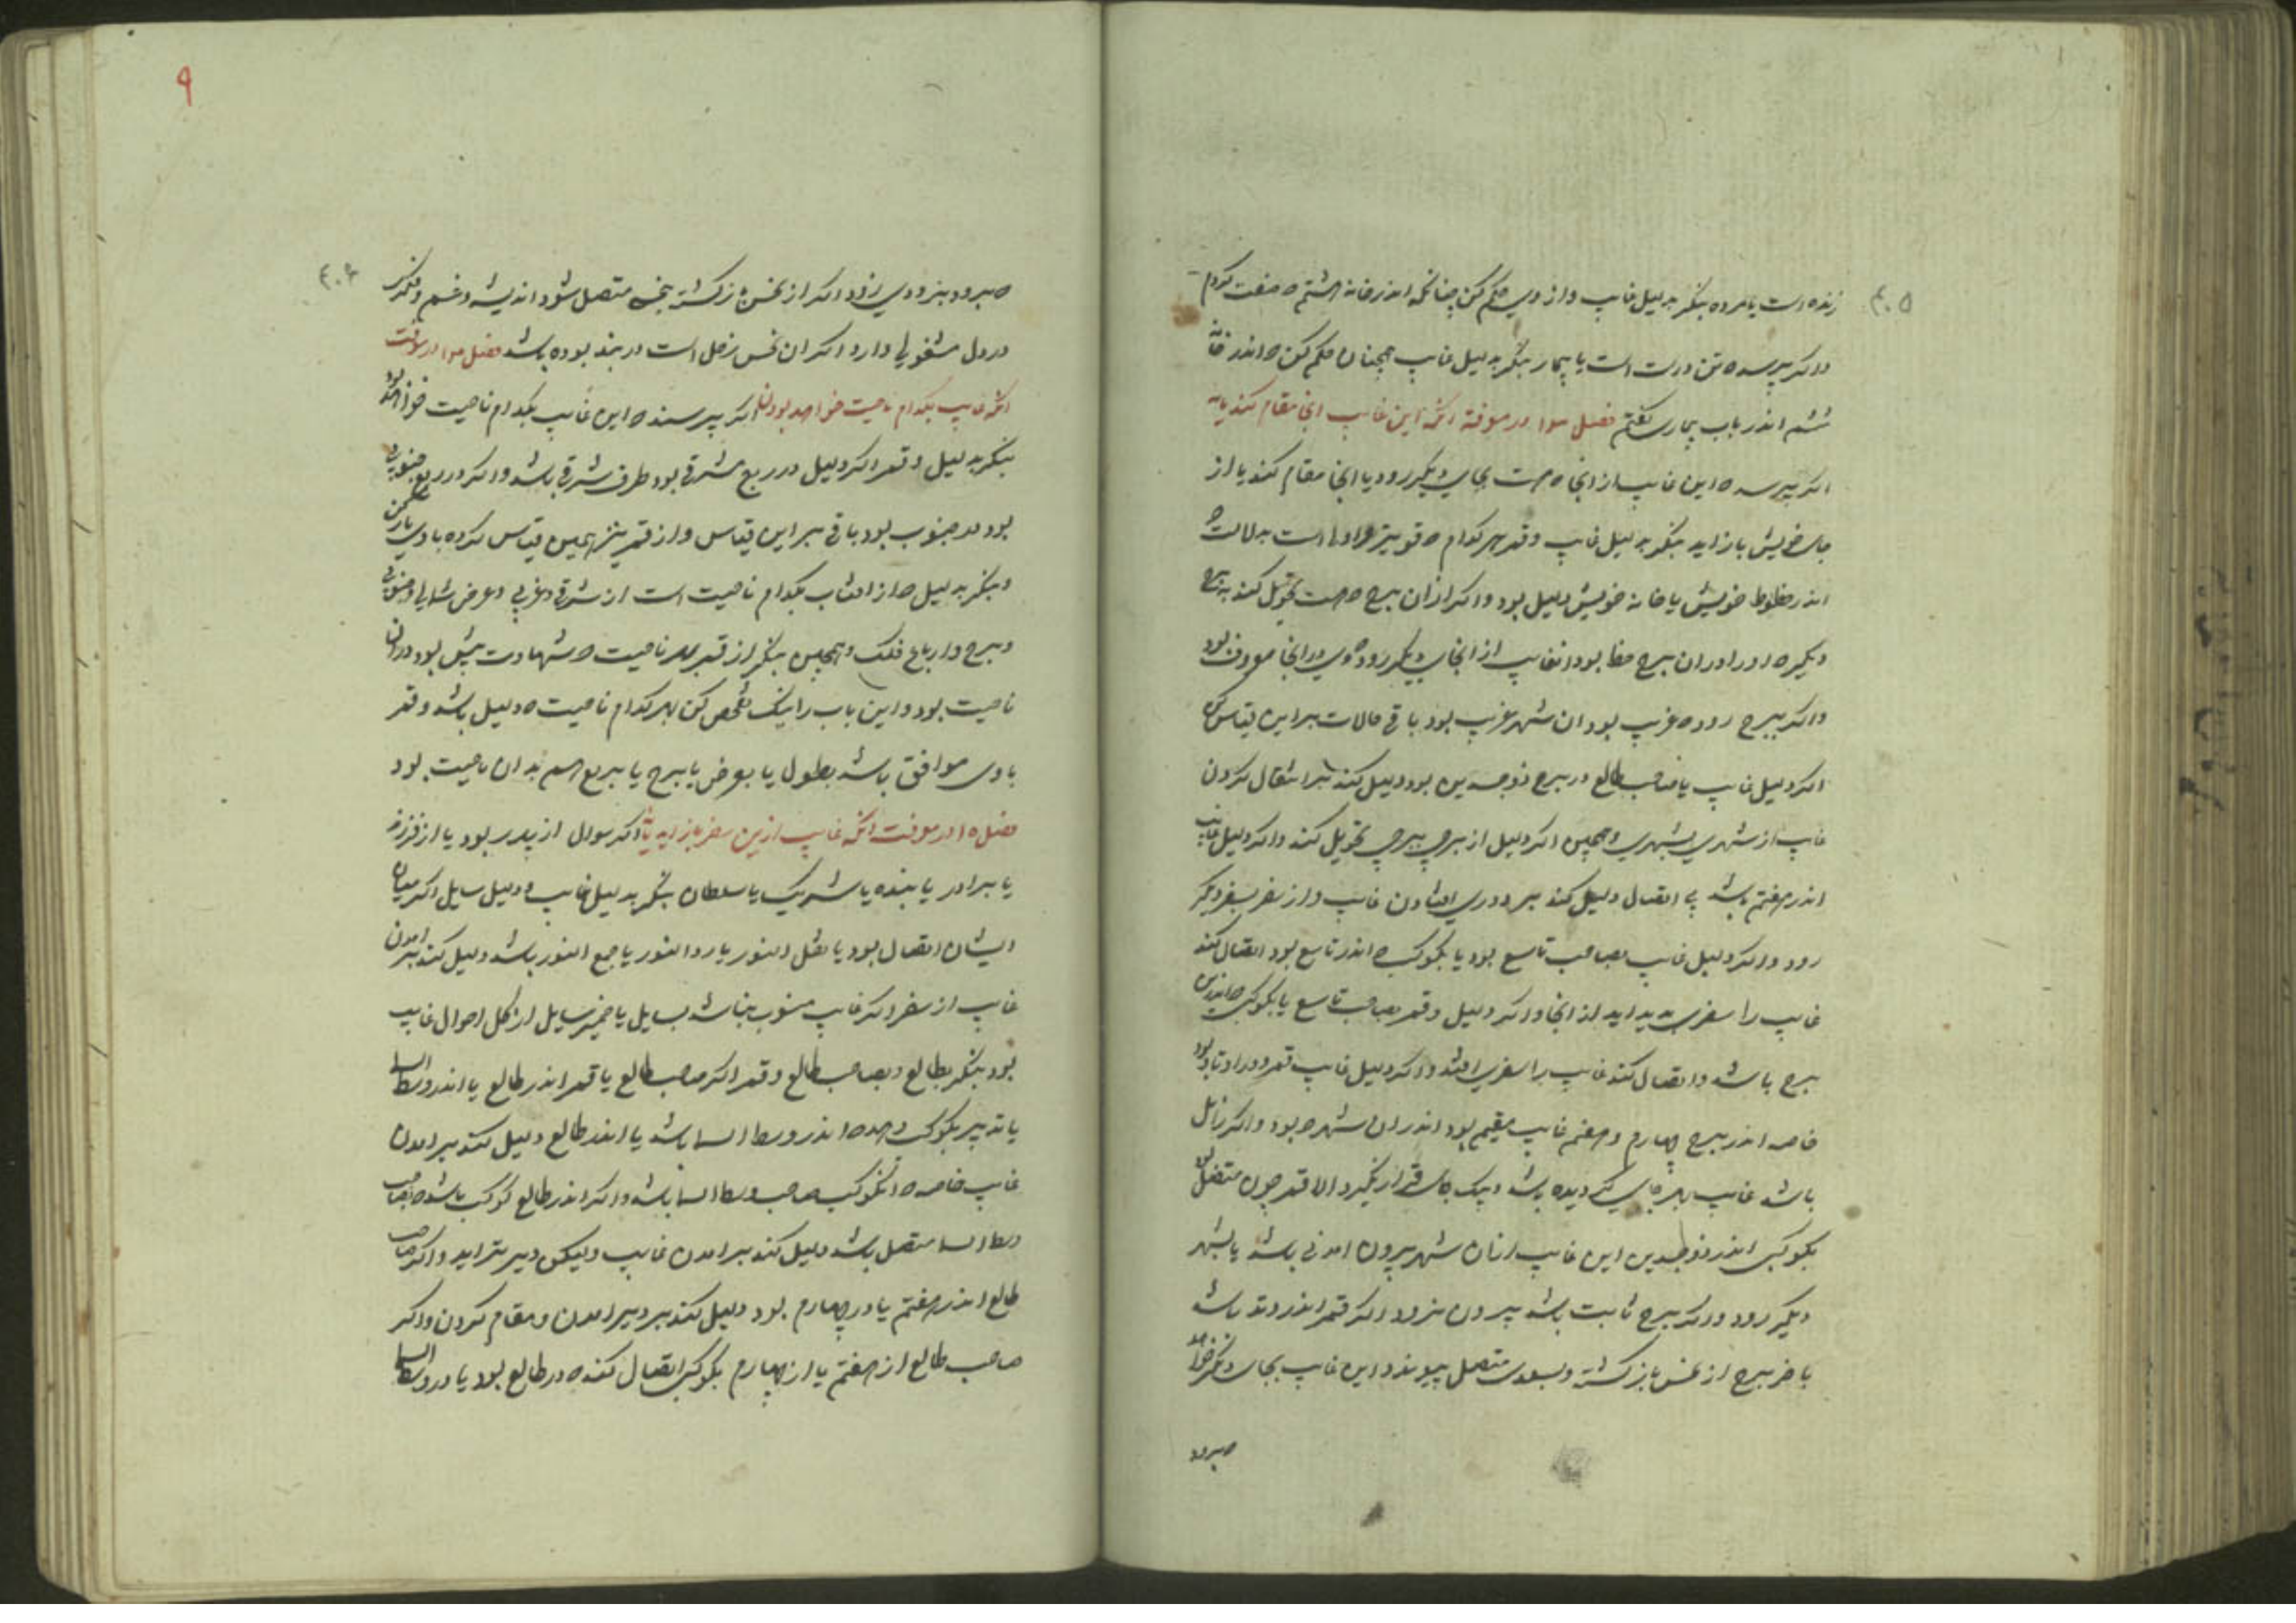 زنده است یا مرده بنکر بدلیل غایب و از وی حکم کن چنانکه اندر خانه هشتم صفت کردم
و اکر پرسد ه تن درست است یا بیمار بنکر بدلیل غایب همچنان حکم کن ه اندر خانه
ششم اندر باب بیماری کفتم فصل در معرفة انکه این غایب انجا مقام کند یا نه
اکر پرسد ه این غایب از انجا ه هست بجای دیکر رود یا انجا مقام کند یا از
جای خویش باز اید بنکر بدلیل غایب و قمر هر کدام ه قویتر است بدلالت
اندر حظوظ خویش یا خانه خویش دلیل بود و اکر از ان برج ه هست تحویل کند به برج
دیکر ه او را در ان برج حظ بود انغایب از انجا بجای دیکر رود ه وی را انجا معروف بود
و اکر ببرج رود ه غریب بود ان شهر غریب بود باقی حالات بر این قیاس کن
اکر دلیل غایب یا صاحب طالع در برج ذوجسدین بود دلیل کند بر انتقال کردن
غایب از شهری بشهری و همچنین اکر دلیل از برجی ببرجی تحویل کند و اکر دلیل غایب
اندر هفتم باشد بی اتصال دلیل کند بر دوری افتادن غایب و از سفر بسفر دیکر
رود و اکر دلیل غایب بصاحب تاسع بود یا بکوکب ه اندر تاسع بود اتصال کند
غایب را سفری پدید اید از انجا و اکر دلیل و قمر بصاحب تاسع یا بکوکبی ه اندرین
برج باشد و اتصال کند غایب را سفری افتد و اکر دلیل غایب قمر و در اوتاد بود
خاصه اندر برج چهارم و هفتم غایب مقیم بود اندر ان شهر ه بود و اکر زایل
باشد غایب بهر جای کردیده باشد و بیک جای قرار نکیرد الا قمر چون متصل بود
بکوکبی اندر ذوجسدین این غایب از ان شهر بیرون امدنی باشد یا بشهر
دیکر رود و اکر برج ثابت باشد بیرون نرود اکر قمر اندر وتد باشد
باخر برج از نحس باز کشته و بسعدی متصل پیوندد این غایب بجای دیکر خواهد
ه برود
۹
ه برود بزودی رود اکر از نحس باز کشته بنحس متصل شود اندیشه و غم و فکر
در دل مشغولی دارد اکر ان نحس زحل است در بند بوده باشد فصل در معرفت
انکه غایب بکدام ناحیت خواهد بودن اکر پرسند ه این غایب بکدام ناحیت خواهد بود
بنکر بدلیل و قمر اکر دلیل در ربع مشرقی بود طرف شرقی باشد و اکر در ربع جنوبی
بود جنوب بود باقی بر این قیاس و از قمر نیز همین قیاس کرده با وی یار کن
و بنکر بدلیل ه از افتاب بکدام ناحیت است از شرقی و غربی و عرض شمالی و جنوبی
و برج و ارباع فلک و همچنین بنکر از قمر هر ناحیت ه شهادت بیش بود در ان
ناحیت بود و این باب را نیک تفحص کن بهر کدام ناحیت ه دلیل باشد و قمر
با وی موافق باشد بطول یا بعرض یا برج یا بربع هم بدان ناحیت بود
فصل ۱۵ در معرفت انکه غایب ازین سفر باز اید یا نه اکر سوال از پدر بود یا از فرزند
یا برادر یا بنده یا شریک یا سلطان بنکر بدلیل غایب و دلیل سایل اکر میان
ایشان اتصال بود یا نقل النور یا رد النور یا جمع النور باشد دلیل کند بر امدن
غایب از سفر و اکر غایب منسوب نباشد بسایل یا ضمیر سایل از کل احوال غایب
بود بنکر بطالع و بصاحب طالع و قمر اکر صاحب طالع یا قمر اندر طالع یا اندر وسط السما
یا تدبیر بکوکب دهد ه اندر وسط السما باشد یا اندر طالع دلیل کند بر امدن
غایب خاصه ه انکوکب صاحب وسط السما باشد و اکر اندر طالع کوکب باشد ه بصاحب
وسط السما متصل باشد دلیل کند بر امدن غایب ولیکن دیرتر اید و اکر صاحب
طالع اندر هفتم یا در چهارم بود دلیل کند بر دیر امدن و مقام کردن و اکر
صاحب طالع از هفتم یا از چهارم بکوکبی اتصال کند ه در طالع بود یا در وسط السما